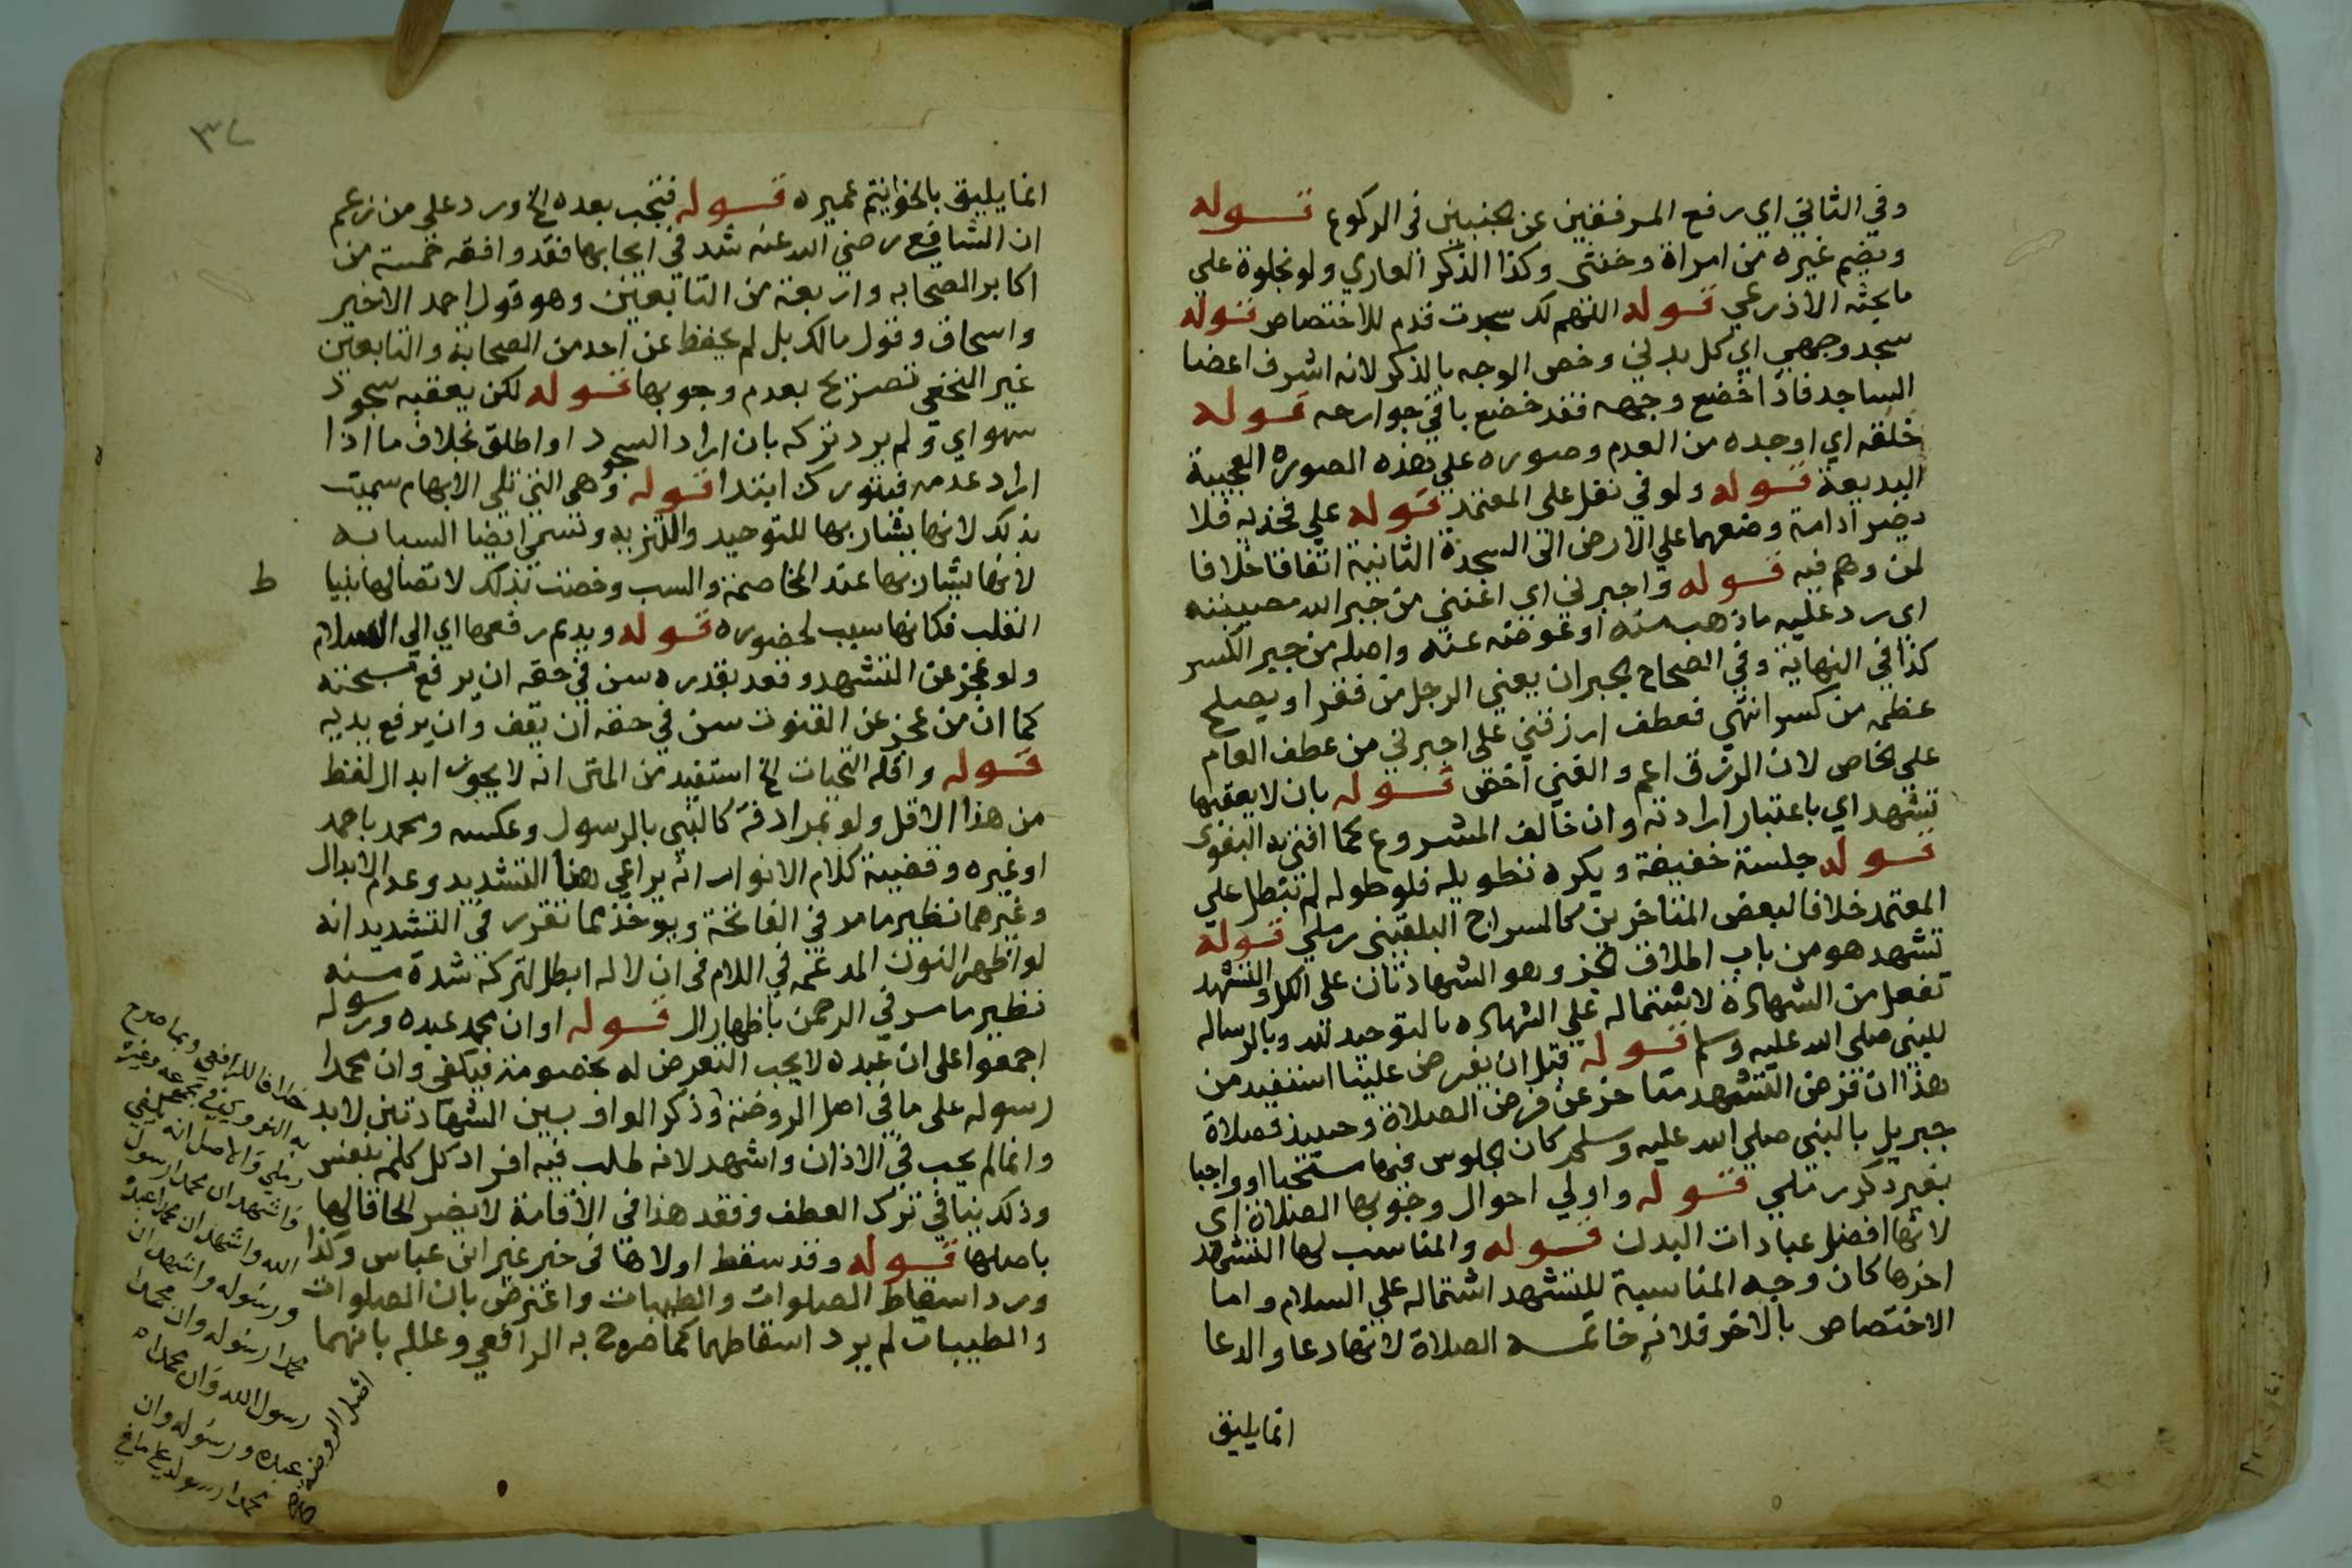 وفي الثاني اي رفع المرفقين عن الجنبين في الركوع قوله
ويضم غيره من امراة وخنثى وكذا الذكر العاري ولو بخلوة على
ما بحثه الاذرعي قوله اللهم لك سجدت قدم للاختصاص قوله
سجد وجهي اي كل بدني وخص الوجه بالذكر لانه اشرف اعضا
الساجد فاذا خضع وجهه فقد خضع باقي جوارحه قوله
خلقه اي اوجده من العدم وصوره على هذه الصورة العجيبة
البديعة قوله ولو في نفل على المعتمد قوله علي فخذيه فلا
يضر ادامة وضعهما علي الارض الى السجدة الثانية اتفاقا خلافا
لمن وهم فيه قوله واجبرني اي اغنني من جبر الله مصيبته
اى رد عليه ما ذهب منه او عوضه عنه واصله من جبر الكسر
كذا في النهاية وفي الصحاح الجبران يغني الرجل من فقر او يصلح
عظمه من كسر انتهي فعطف ارزقني على اجبرني من عطف العام
علي الخاص لان الرزق اعم والغني اخص قوله بان لا يعقبها
تشهد اي باعتبار ارادته وان خالف المشروع كما افتي به البغوى
قوله جلسة خفيفة ويكره تطويله فلو طوله لم تبطل علي
المعتمد خلافا لبعض المتاخرين كالسراج البلقيني رملي قوله
تشهد هو من باب اطلاق الجز وهو الشهادتان على الكل والتشهد
تفعل من الشهادة لاشتماله علي الشهاده بالتوحيد لله وبالرساله
للنبي صلى الله عليه وسلم قوله قبل ان يفرض علينا استفيد من
هذا ان فرض التشهد متاخر عن فرض الصلاة وحينيذ فصلاة
جبريل بالنبي صلي الله عليه وسلم كان الجلوس فيها مستحبا او واجبا
بغير ذكر رملي قوله واولي احوال وجوبها الصلاة اي
لانها افضل عبادات البدن قوله والمناسب لها التشهد
اخرها كان وجه المناسبة للتشهد اشتماله علي السلام واما
الاختصاص بالاخر فلانه خاتمه الصلاة لانها دعا والدعا
انما يليق
٣٤
انما يليق بالخواتيم عميره قوله فتجب بعده الخ ورد على من زعم
ان الشافعي رضي الله عنه شد في ايجابها فقد وافقه خمسة من
اكابر الصحابه واربعة من التابعين وهو قول احمد الاخير
واسحاق وقول مالك بل لم يحفظ عن احد من الصحابة والتابعين
غير النخعي تصريح بعدم وجوبها قوله لكن يعقبه سجود
سهو اي ولم يرد تركه بان اراد السجود او اطلق بخلاف ما اذا
اراد عدمه فيتورك ابتدا قوله وهى التي تلي الابهام سميت
بذلك لانها يشار بها للتوحيد والتنزيه وتسمى ايضا السبابه
لانها يشار بها عند المخاصمة والسب وخصت بذلك لاتصالها بنيا
ط
القلب فكانها سبب لحضوره قوله ويديم رفعها اي الي السلام
ولو عجز عن التشهد وقعد بقدره سن في حقه ان يرفع مسبحته
كما ان من عجز عن القنوت سن في حقه ان يقف وان يرفع يديه
قوله واقله التحيات الخ استفيد من المتن انه لا يجوز ابدال لفظ
من هذا الاقل ولو بمرادفه كالنبي بالرسول وعكسه ومحمد باحمد
او غيره وقضية كلام الانوار انه يراعي هنا التشديد وعدم الابدال
وغيرهما نظير ما مر في الفاتحة ويوخذ مما تقرر في التشديد انه
لو اظهر النون المدغمه في اللام في ان لا اله ابطل لتركه شدة منه
نظير ما مر في الرحمن باظهار ال قوله او ان محمد عبده ورسوله
اجمعوا على ان عبده لا يجب التعرض له بخصوصه فيكفي وان محمدا
رسوله على ما في اصل الروضة وذكر الواو بين الشهادتين لا بد
وانما لم يجب في الاذان واشهد لانه طلب فيه افراد كل كلمة بنفس
وذلك ينافي ترك العطف وفقد هذا في الاقامة لا يضر الحاقا لها
باصلها قوله وقد سقط اولاها في خبر غير ابن عباس وكذا
ورد اسقاط الصلوات والطيبات واعترض بان الصلوات
والطيبات لم يرد اسقاطهما كما صرح به الرافعي وعلله بانهما
خلافا للرافعي وبما صرح
به النووي في مجموعه وغيره
رملي والاصل انه يكفي
واشهد ان محمدا رسول
الله واشهد ان محمدا عبده
ورسوله واشهد ان
محمدا رسوله وان محمدا
رسول الله وان محمدا
عبده ورسوله وان
محمدا رسوله على ما في
اصل الروضه